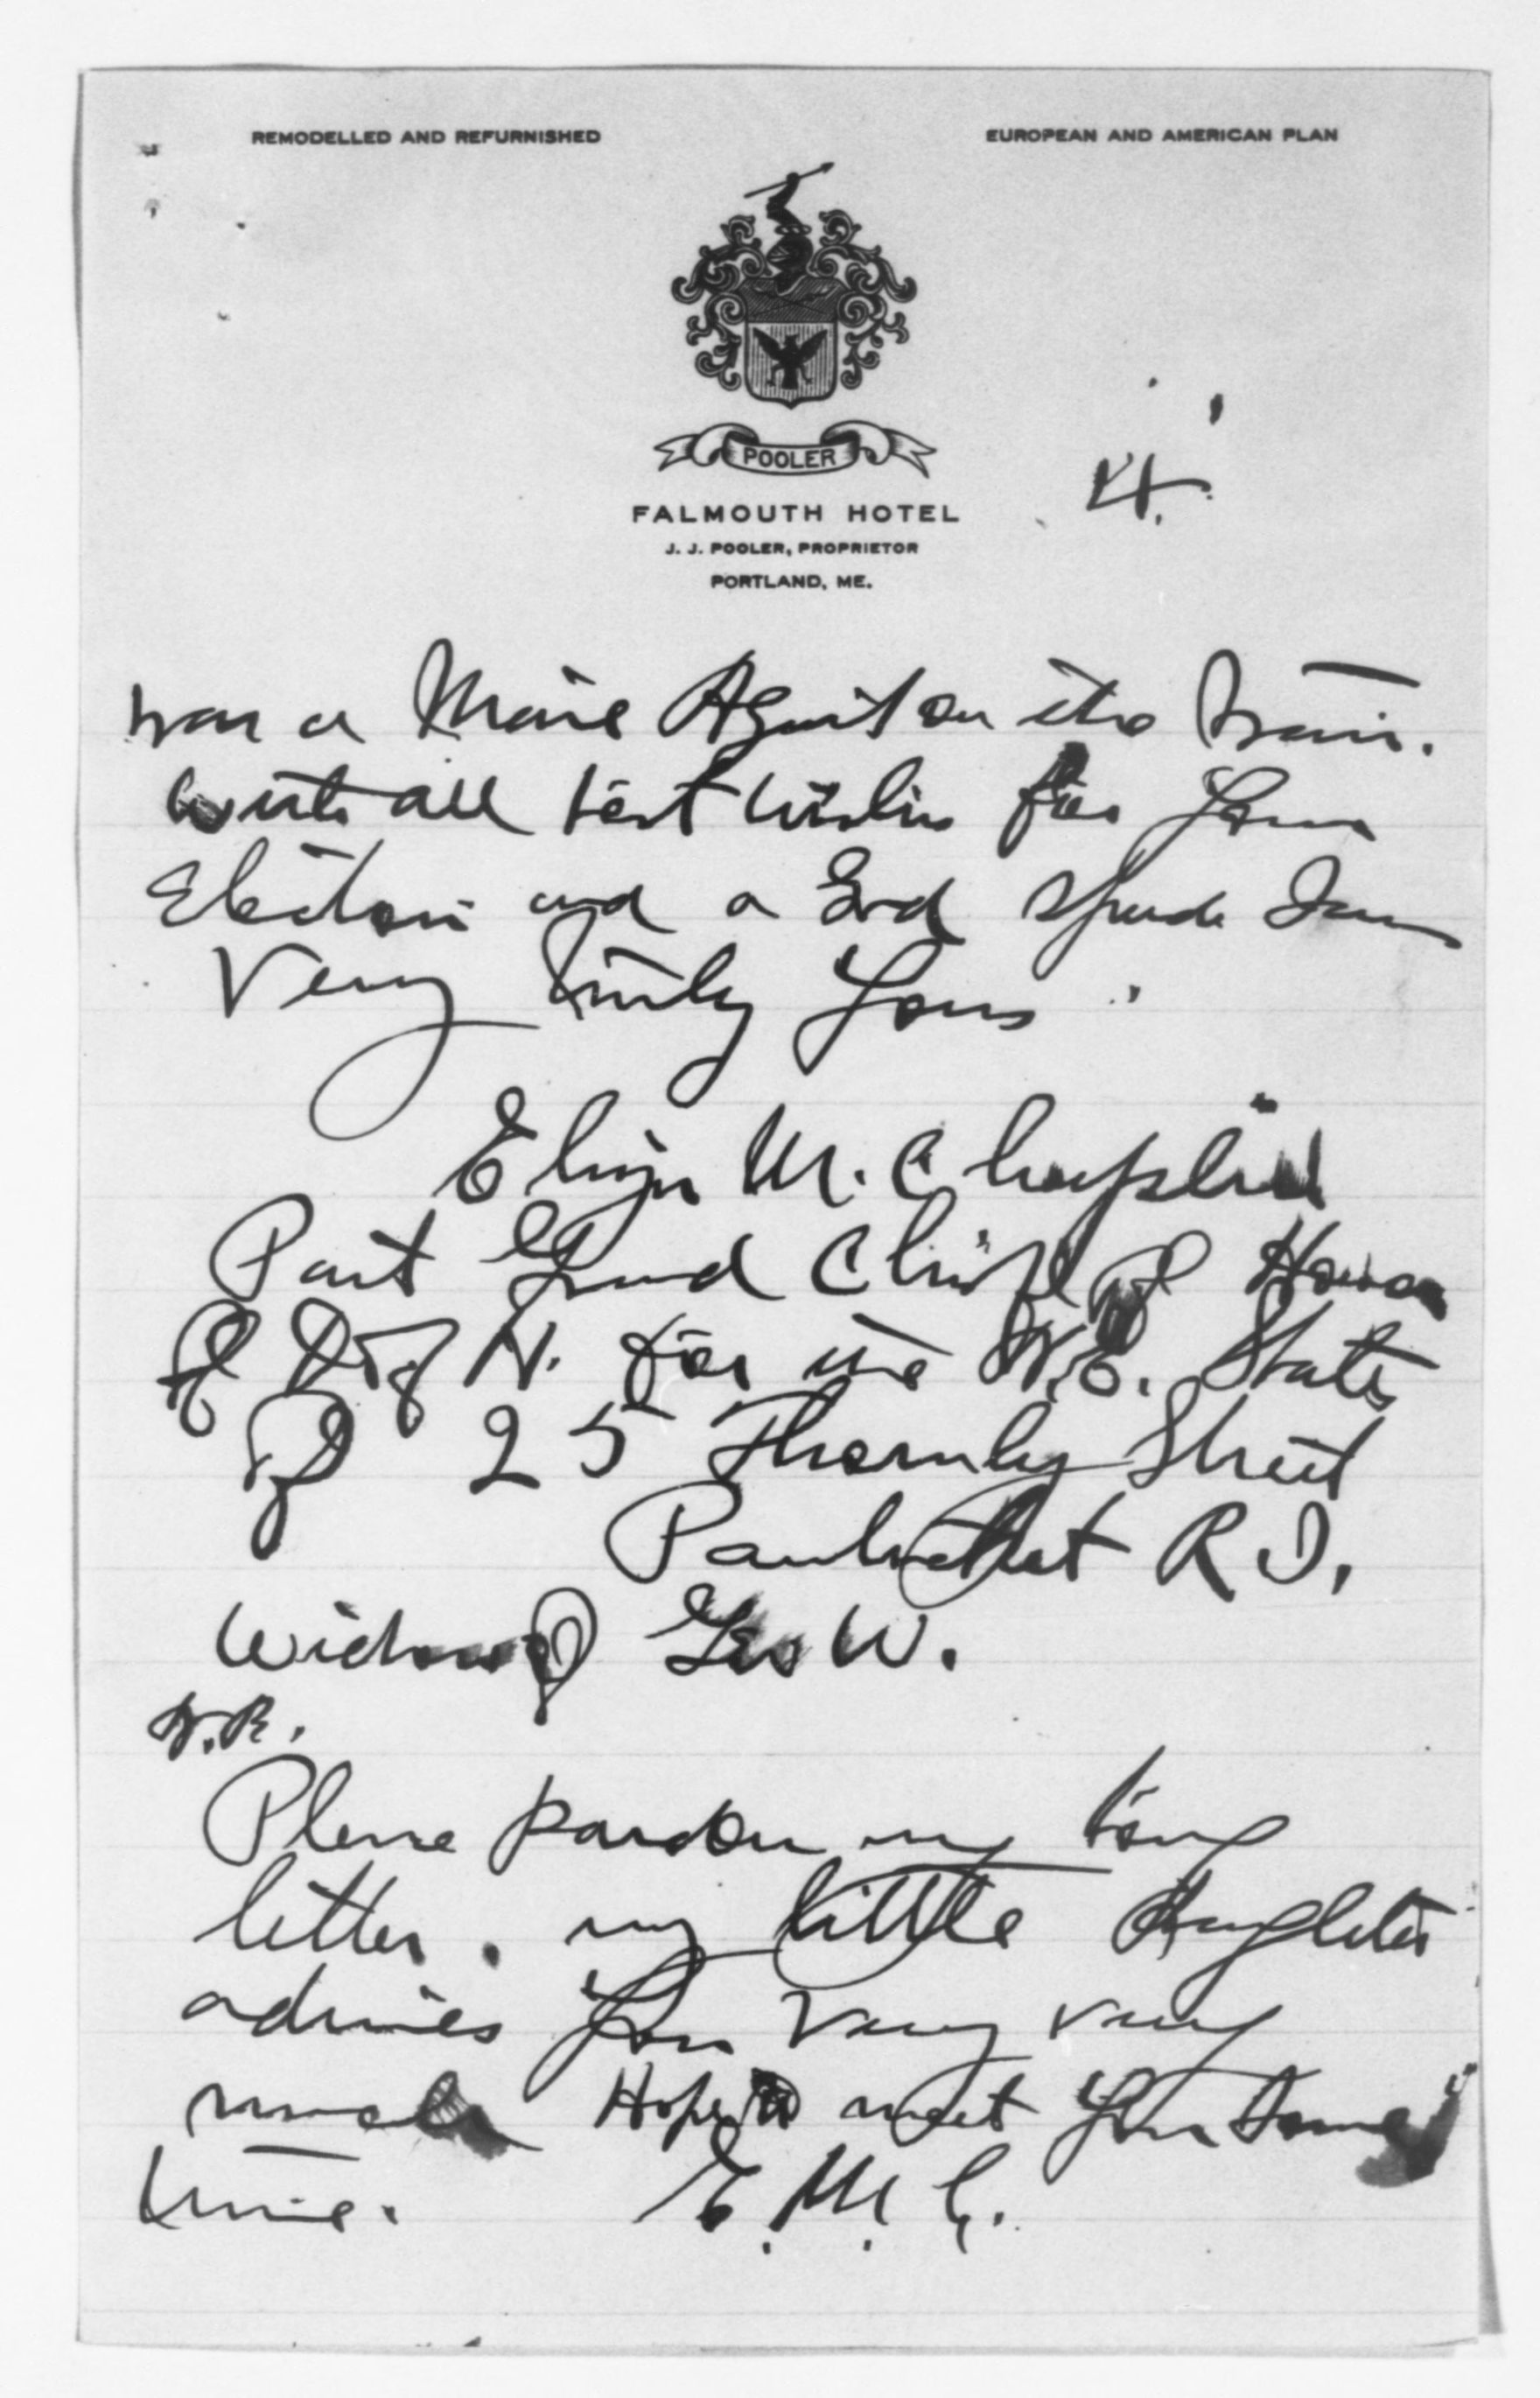 REMODELLED AND REFURNISHED
EUROPEAN AND AMERICAN PLAN
POOLER
FALMOUTH HOTEL
J. J. POOLER, PROPRIETOR
PORTLAND, ME.
4.
was a Agent on the train.
with all best wishes for your
Election and a God speede I am
Very truly yours
Eliza M. Chaplin
Past Grand Chief of Honor
of D of H. for the N.E. States
of 25 Thornley Street
Pawtucket R I.
Widow of Geo W.
Please pardon my long
letter. my little daughter
admires you very very
much Hope to meet you some
time. E. M. C.